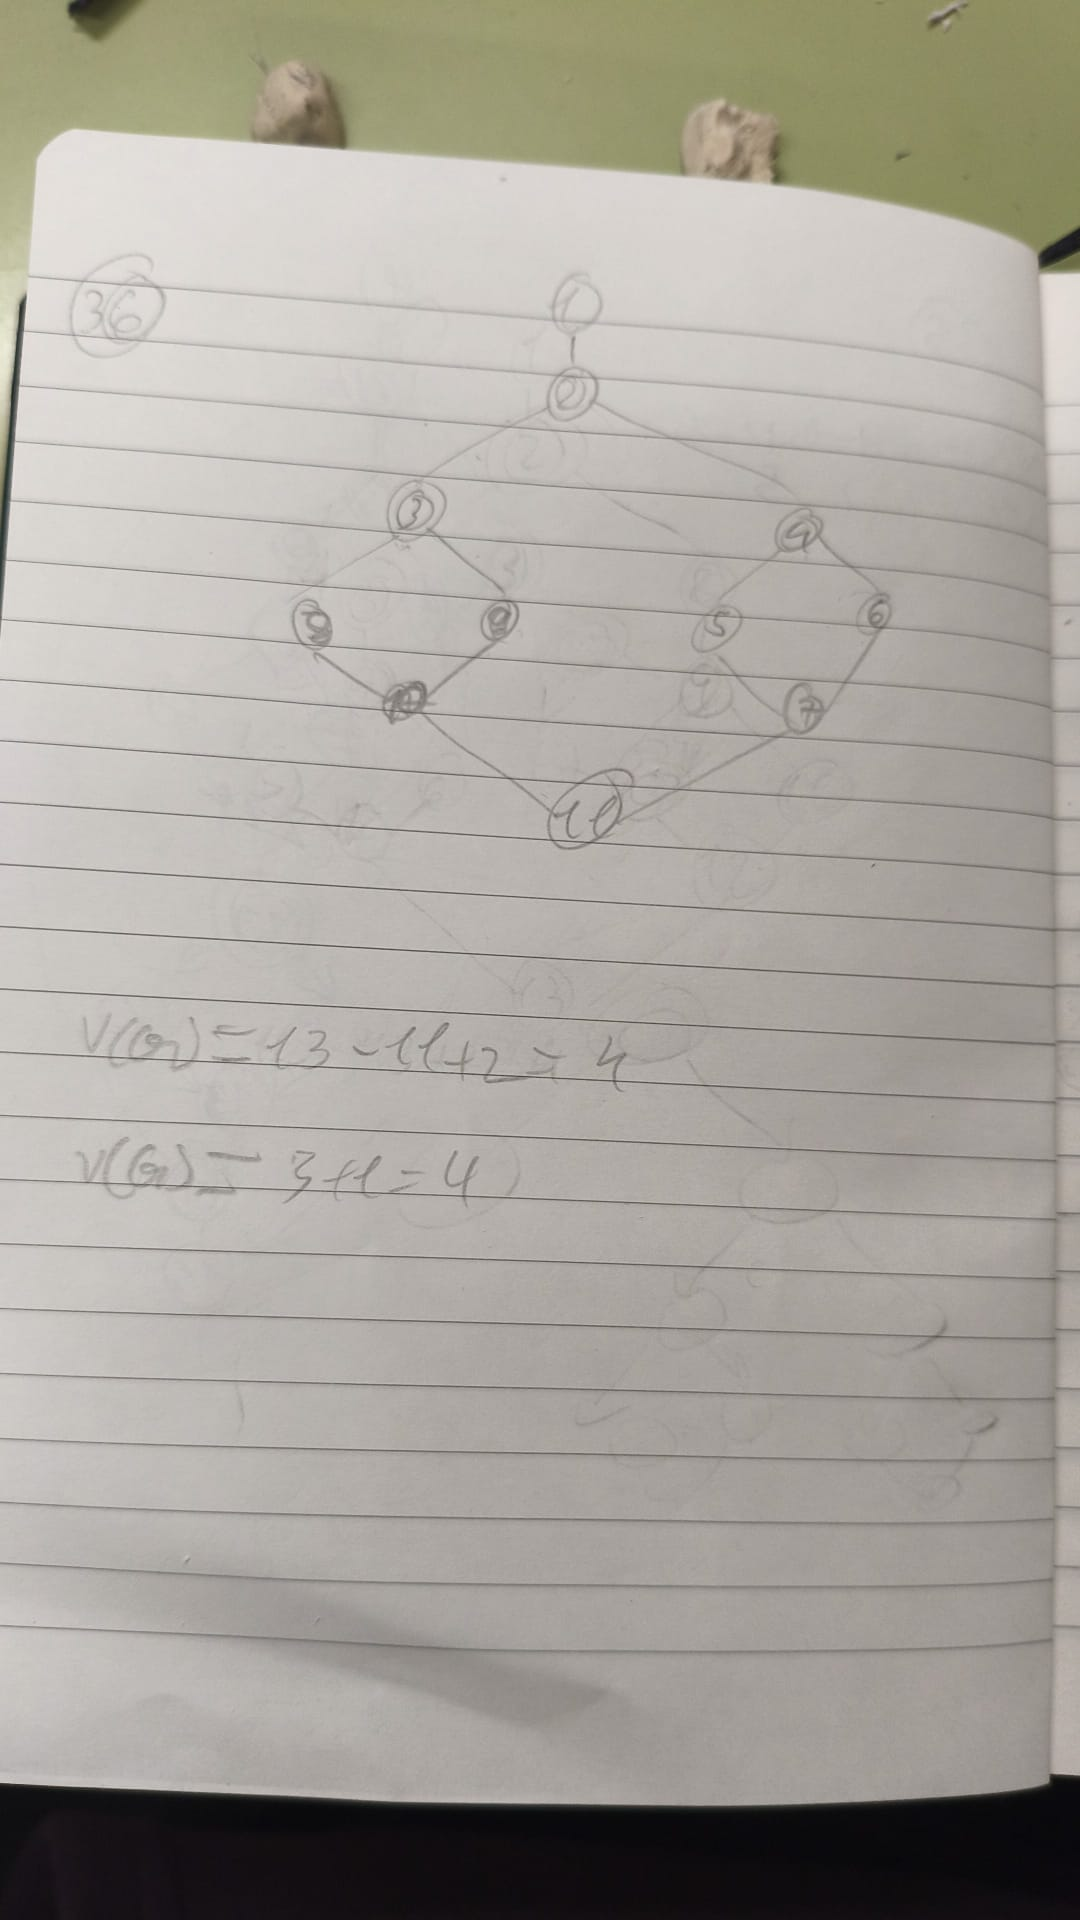 36
1
2
3
4
9
5
6
10
7
11
V(G) = 13 - 11 + 2 = 4
V(G) = 3 + 1 = 4